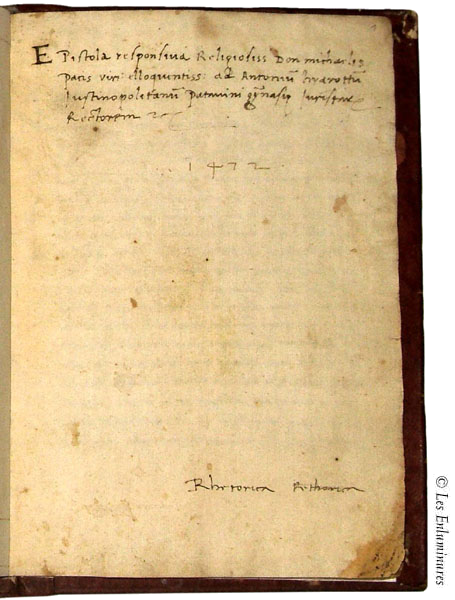 EPistola responsiva Religiosiss Don michaelis
Pacis viri elloquentiss: ad Antonium
Justinopoletanum Patavini gymnasij Jurispe
Rectorem
1472
Rhetorica Rethorica
© Les Enluminures